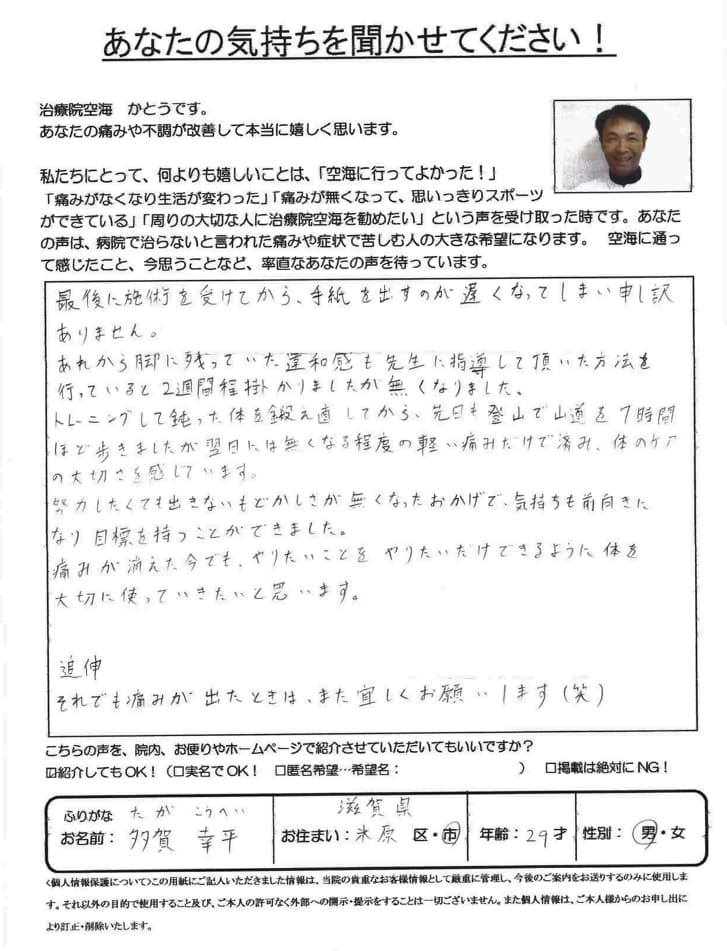 あなたの気持ちを聞かせてください！
治療院空海　かとうです。
あなたの痛みや不調が改善して本当に嬉しく思います。
私たちにとって、何よりも嬉しいことは、「空海に行ってよかった！」
「痛みがなくなり生活が変わった」「痛みが無くなって、思いっきりスポーツ
ができている」「周りの大切な人に治療院空海を勧めたい」という声を受け取った時です。あなた
の声は、病院で治らないと言われた痛みや症状で苦しむ人の大きな希望になります。　空海に通っ
て感じたこと、今思うことなど、率直なあなたの声を待っています。
最後に施術を受けてから、手紙を出すのが遅くなってしまい申し訳
ありません。
あれから脚に残っていた違和感も先生に指導して頂いた方法を
行っていると2週間程掛かりましたが無くなりました。
トレーニングして鈍った体を鍛え直してから、先日も登山で山道を7時間
ほど歩きましたが翌日には無くなる程度の軽い痛みだけで済み、体のケア
の大切さを感じています。
努力したくても出きないもどかしさが無くなったおかげで、気持ちも前向きに
なり目標を持つことができました。
痛みが消えた今でも、やりたいことをやりたいだけできるように体を
大切に使っていきたいと思います。
追伸
それでも痛みが出たときは、また宜しくお願いします(笑)
こちらの声を、院内、お便りやホームページで紹介させていただいてもいいですか？
☑紹介してもOK！（□実名でOK！　□匿名希望…希望名：　　　　　　　）　□掲載は絶対にNG！
ふりがな　たが　こうへい　滋賀県
お名前：多賀　幸平　お住まい：米原　区・市　年齢：29才　性別：男・女
〈個人情報保護について〉この用紙にご記入いただきました情報は、当院の貴重なお客様情報として厳重に管理し、今後のご案内をお送りするのみに使用しま
す。それ以外の目的で使用すること及び、ご本人の許可なく外部への開示・提示をすることは一切ございません。また個人情報は、ご本人様からのお申し出に
より訂正・削除いたします。